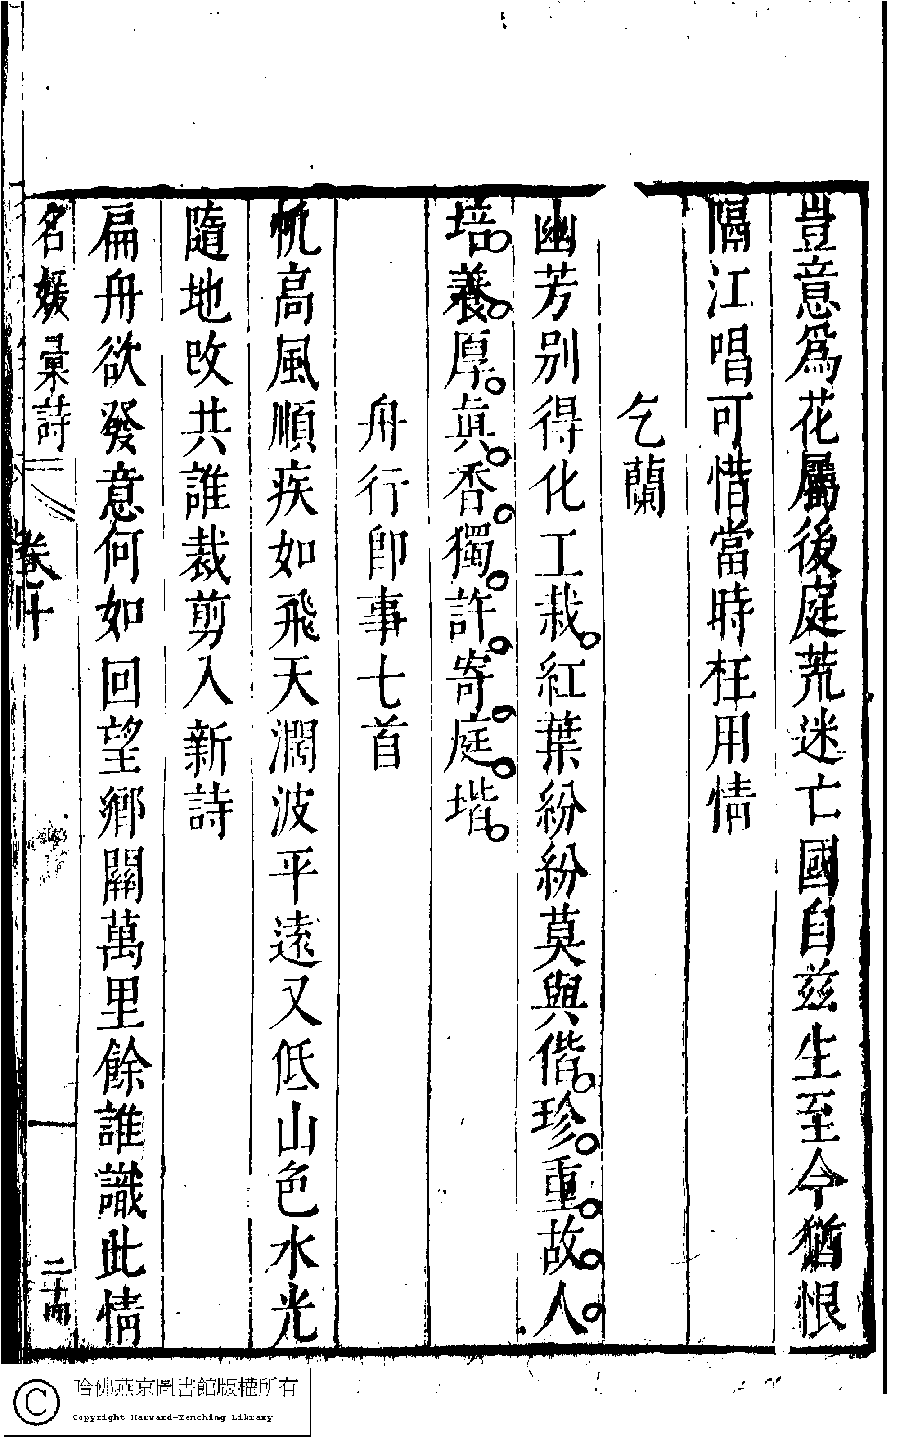 豈意爲花屬後庭荒迷亡國自兹生至今猶恨
隔江唱可惜當時枉用情
乞蘭
幽芳别得化工栽紅葉紛紛莫與偕珍重故人
培養厚眞香獨許寄庭堦
舟行卽事七首
帆高風順疾如飛天濶波平遠又低山色水光
隨地改共誰裁剪入新詩
扁舟欲發意何如回望鄉關萬里餘誰識此情
名媛彙詩
卷十
二十四
哈佛燕京圖書館版權所有
Copyright Harvard-Yenching Library